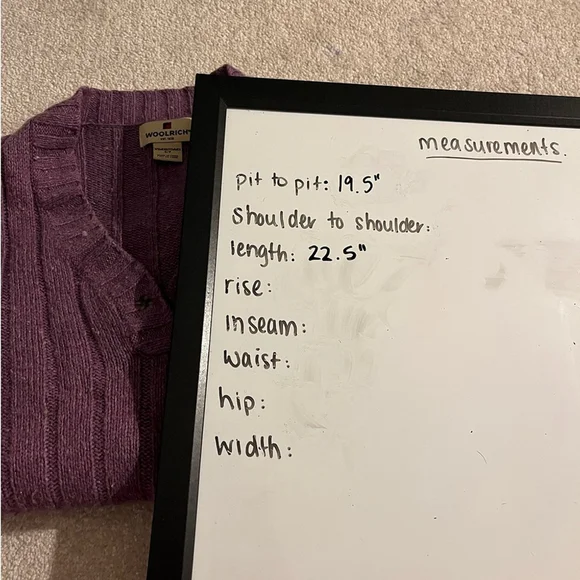 WOOLRICH
measurements.
pit to pit: 19.5"
shoulder to shoulder:
length: 22.5"
rise:
Inseam:
waist:
hip:
width: